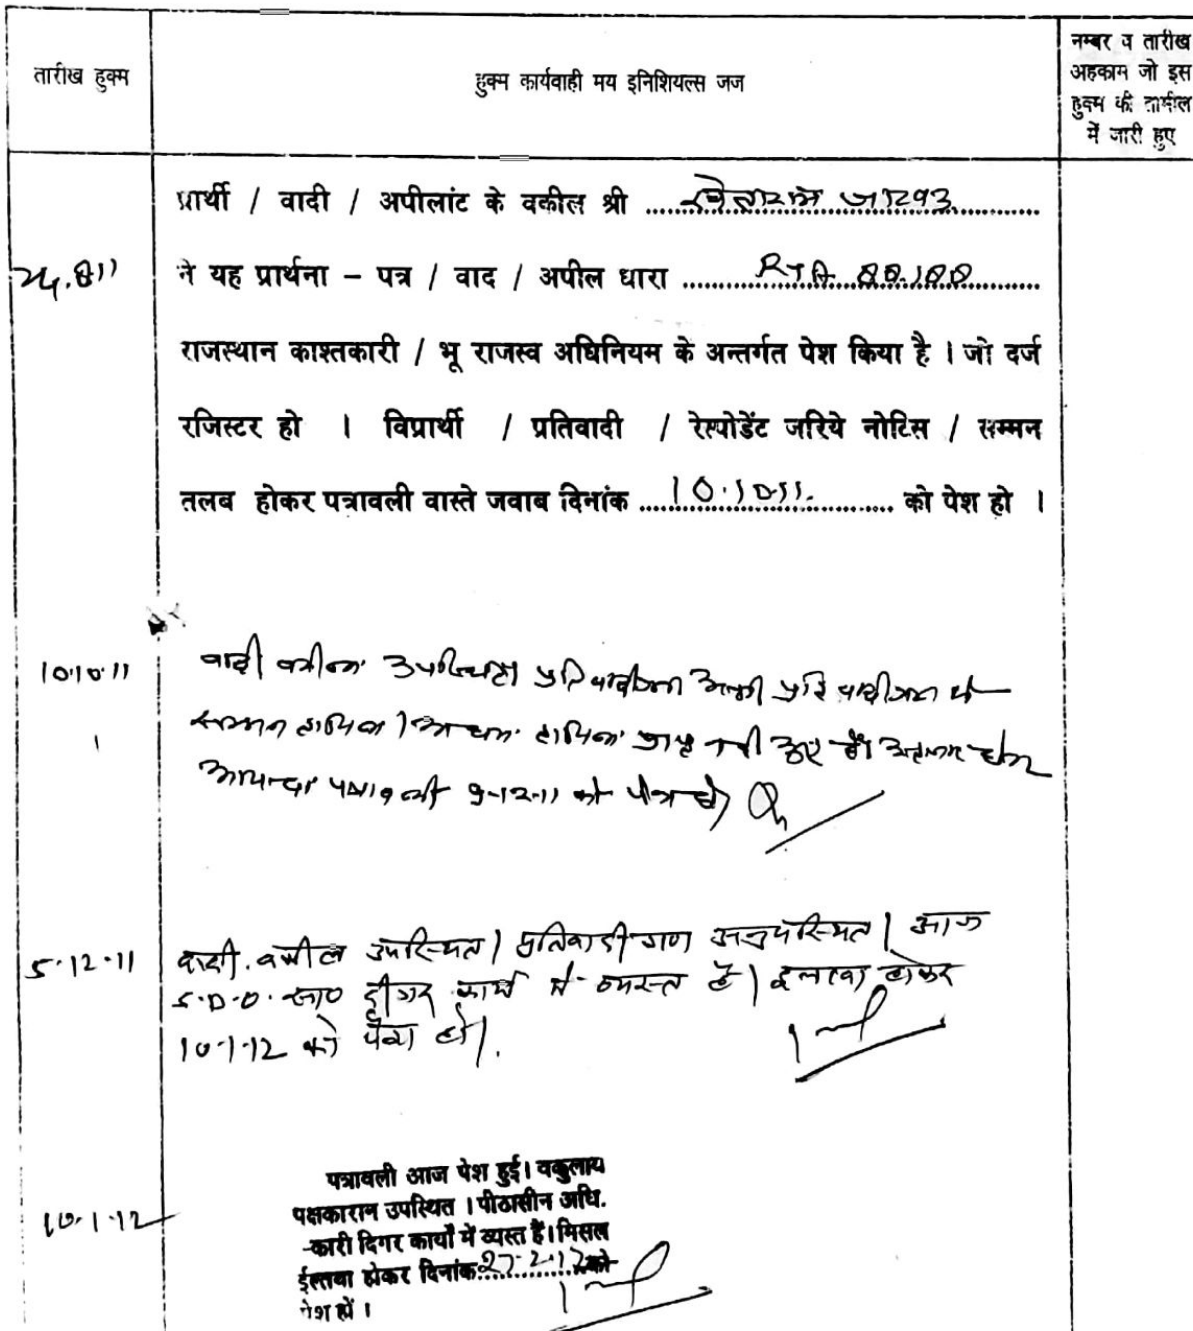 तारीख हुक्म
हुक्म कार्यवाही मय इनिशियल्स जज
नम्बर व तारीख
अहकाम जो इस
हुक्म की तामील
में जारी हुए
प्रार्थी / वादी / अपीलांट के वकील श्री
ने यह प्रार्थना – पत्र / वाद / अपील धारा
राजस्थान काश्तकारी / भू राजस्व अधिनियम के अन्तर्गत पेश किया है । जो दर्ज
रजिस्टर हो । विप्रार्थी / प्रतिवादी / रेस्पोडेंट जरिये नोटिस / सम्मन
तलब होकर पत्रावली वास्ते जवाब दिनांक 10.10.11. को पेश हो ।
10.10.11
वादी वकील उपस्थित
सम्मन
9-12-11 को पेश हो
5.12.11
वादी वकील उपस्थित । प्रतिवादी गण अनुपस्थित । आज
S.D.O. सा० दीगर कार्य में व्यस्त है । होकर
10.1.12 को पेश हो ।
10.1.12
पत्रावली आज पेश हुई। वकुलाय
पक्षकारान उपस्थित । पीठासीन अधि.
-कारी दिगर कार्यों में व्यस्त हैं। मिसल
ईस्तवा होकर दिनांक 27.2.12 को
पेश हों ।